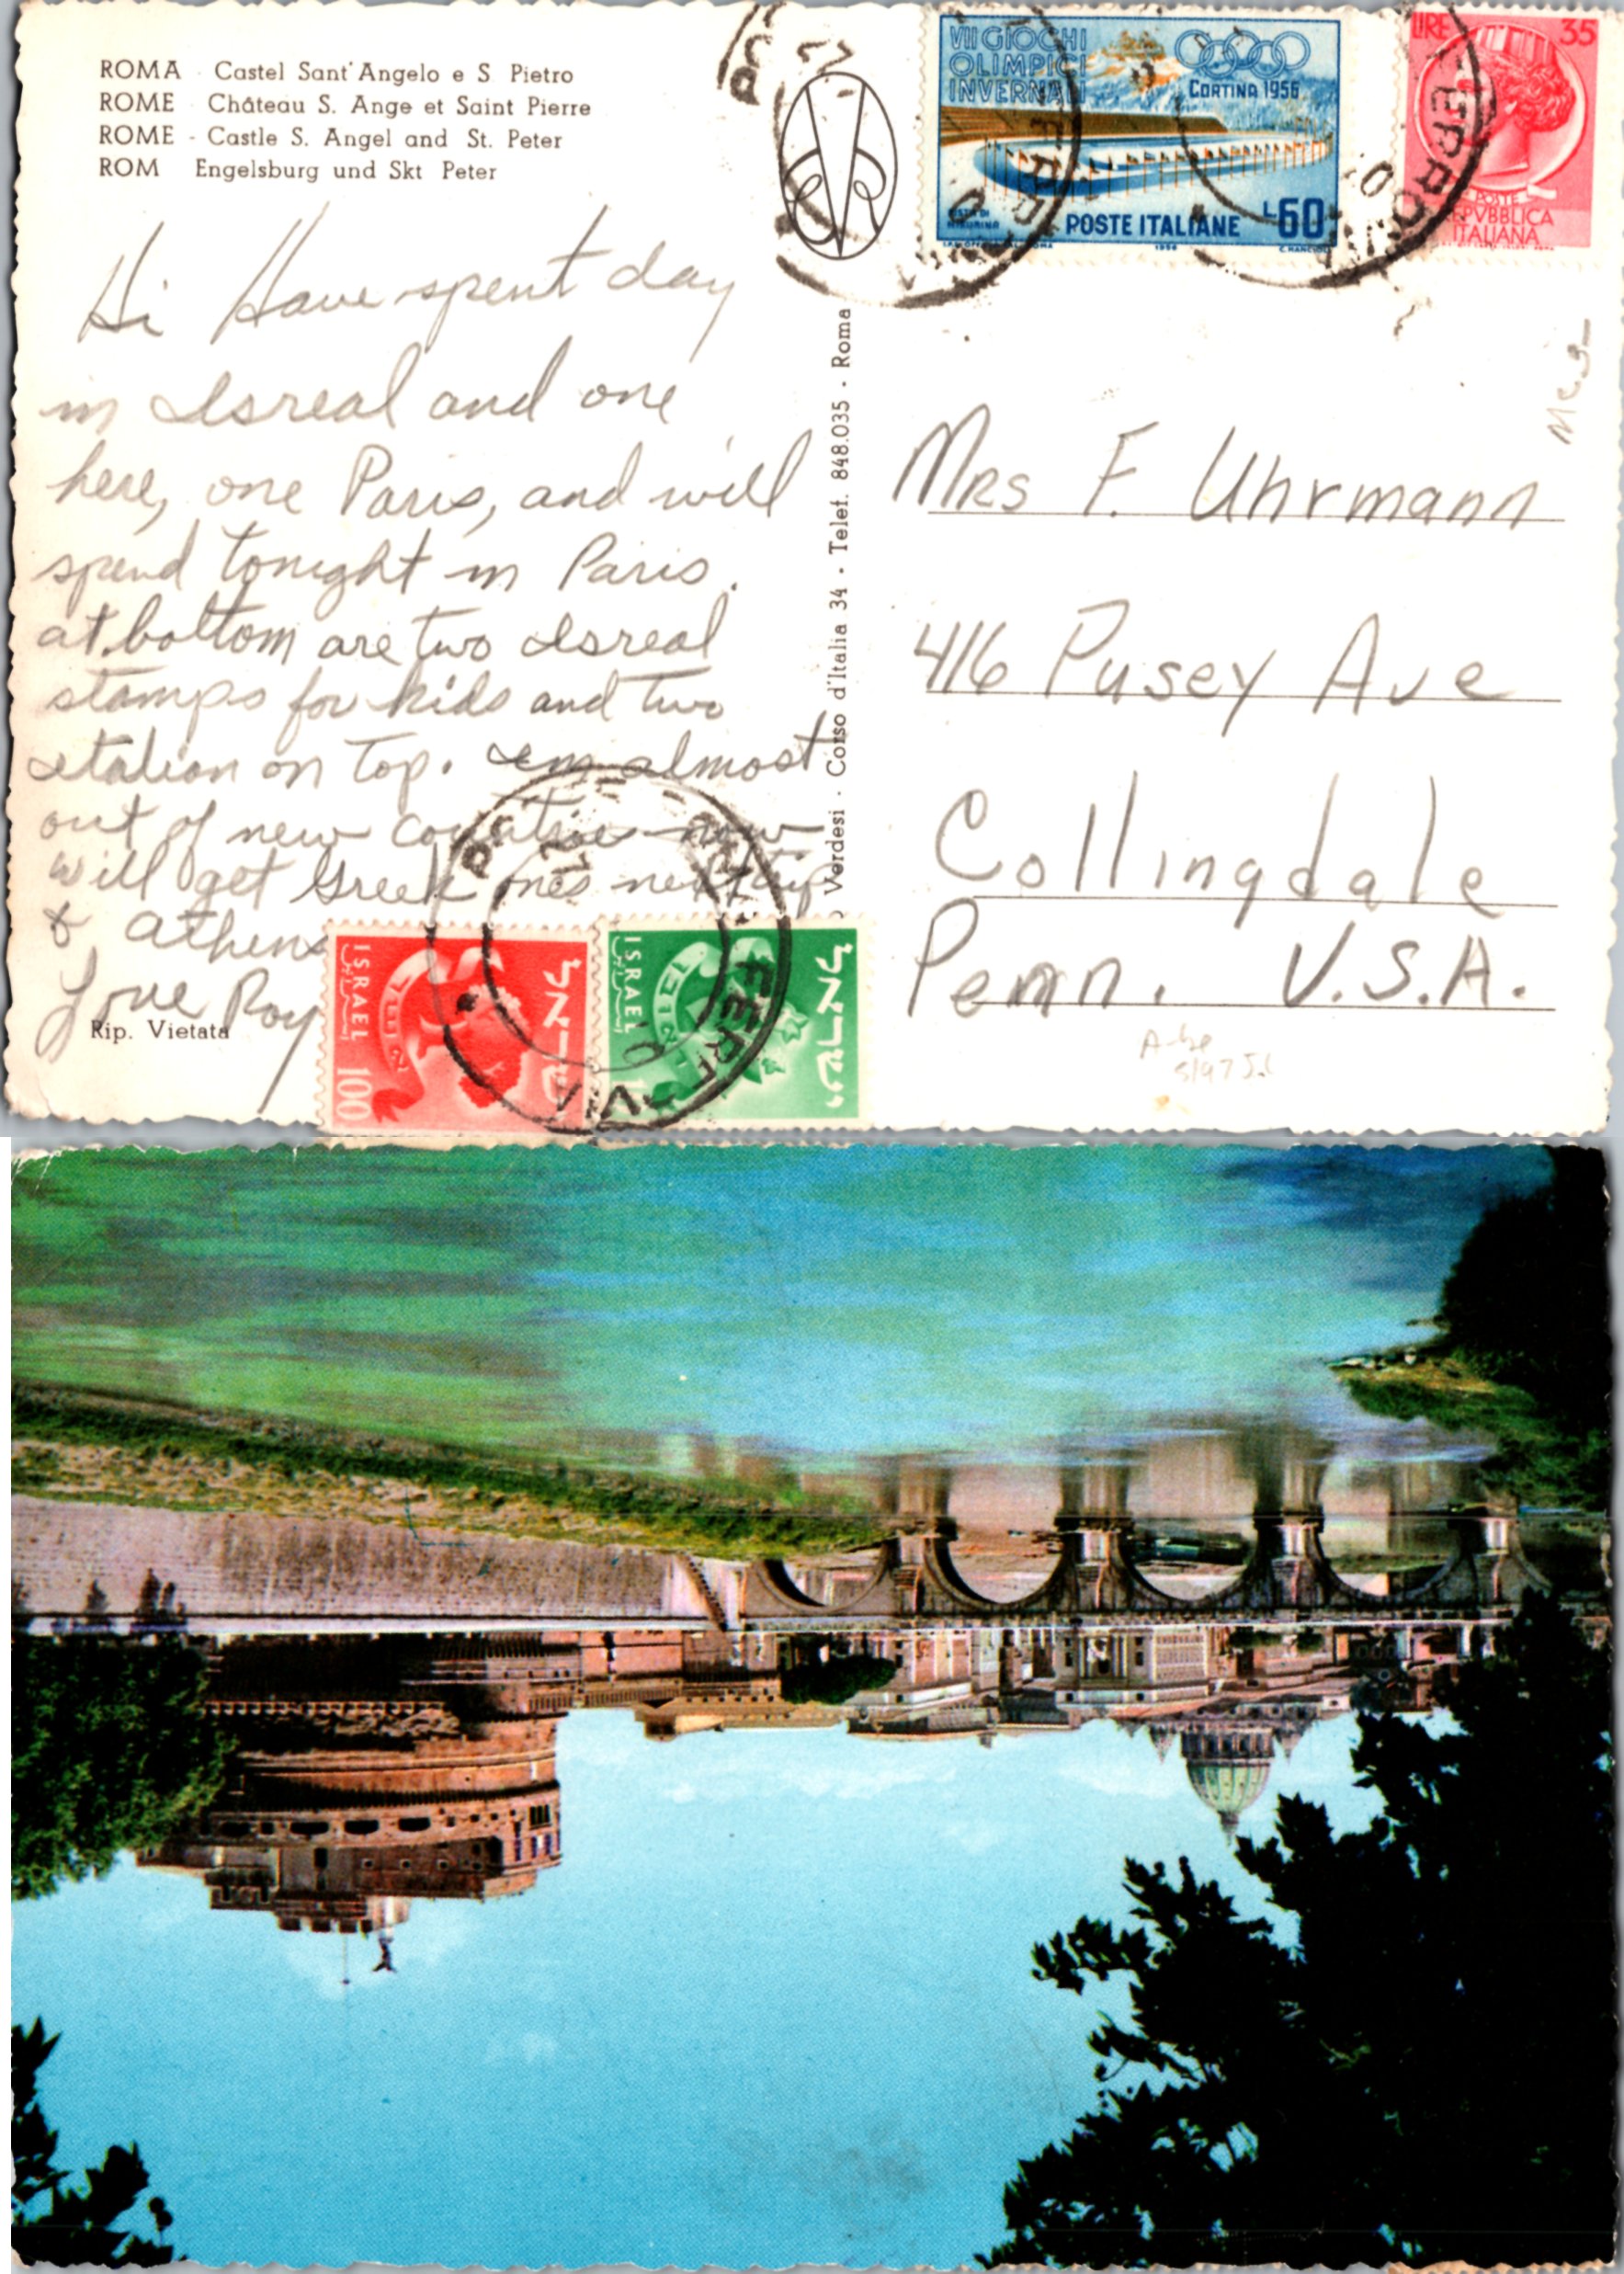 ROMA - Castel Sant' Angelo e S. Pietro
ROME - Château S. Ange et Saint Pierre
ROME - Castle S. Angel and St. Peter
ROM Engelsburg und Skt Peter
Hi Have spent day
in Isreal and one
here, one Paris, and will
spend tonight in Paris.
at bottom are two Isreal
stamps for kids and two
Italian on top. Im almost
out of new countries now
will get Greek ones next trip
& Athens
Love Roy
Rip. Vietata
Verdesi - Corso d'Italia 34 - Telef. 848.035 - Roma
VII GIOCHI
OLIMPICI
INVERNALI
CORTINA 1956
POSTE ITALIANE L60
1956
LIRE 35
POSTE
REPVBBLICA
ITALIANA
Mrs F. Uhrmann
416 Pusey Ave
Collingdale
Penn. U.S.A.
5/97
ISRAEL
ישראל
100
ISRAEL
ישראל